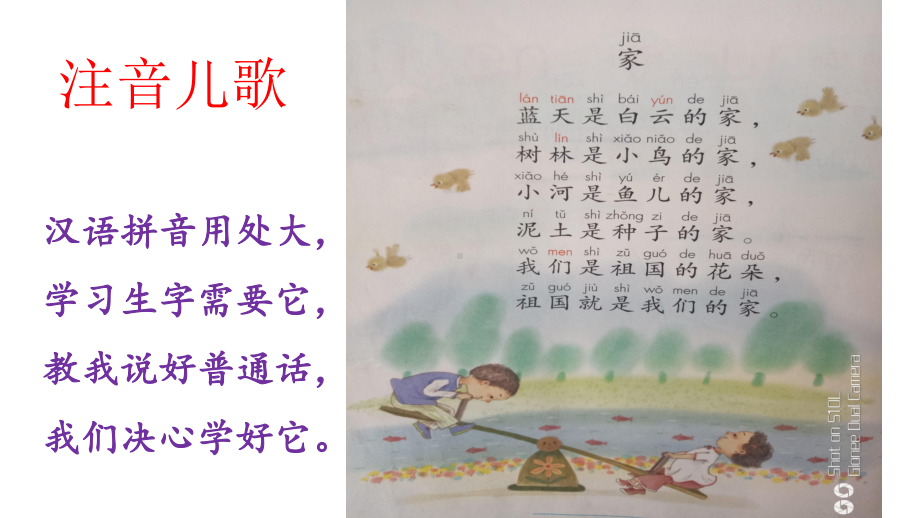 注音儿歌
汉语拼音用处大，
学习生字需要它，
教我说好普通话，
我们决心学好它。
jiā
家
lán tiān shì bái yún de jiā
蓝天是白云的家，
shù lín shì xiǎo niǎo de jiā
树林是小鸟的家，
xiǎo hé shì yú ér de jiā
小河是鱼儿的家，
ní tǔ shì zhǒng zi de jiā
泥土是种子的家。
wǒ men shì zǔ guó de huā duǒ
我们是祖国的花朵，
zǔ guó jiù shì wǒ men de jiā
祖国就是我们的家。
Shot on S10L
Gionee Dual Camera